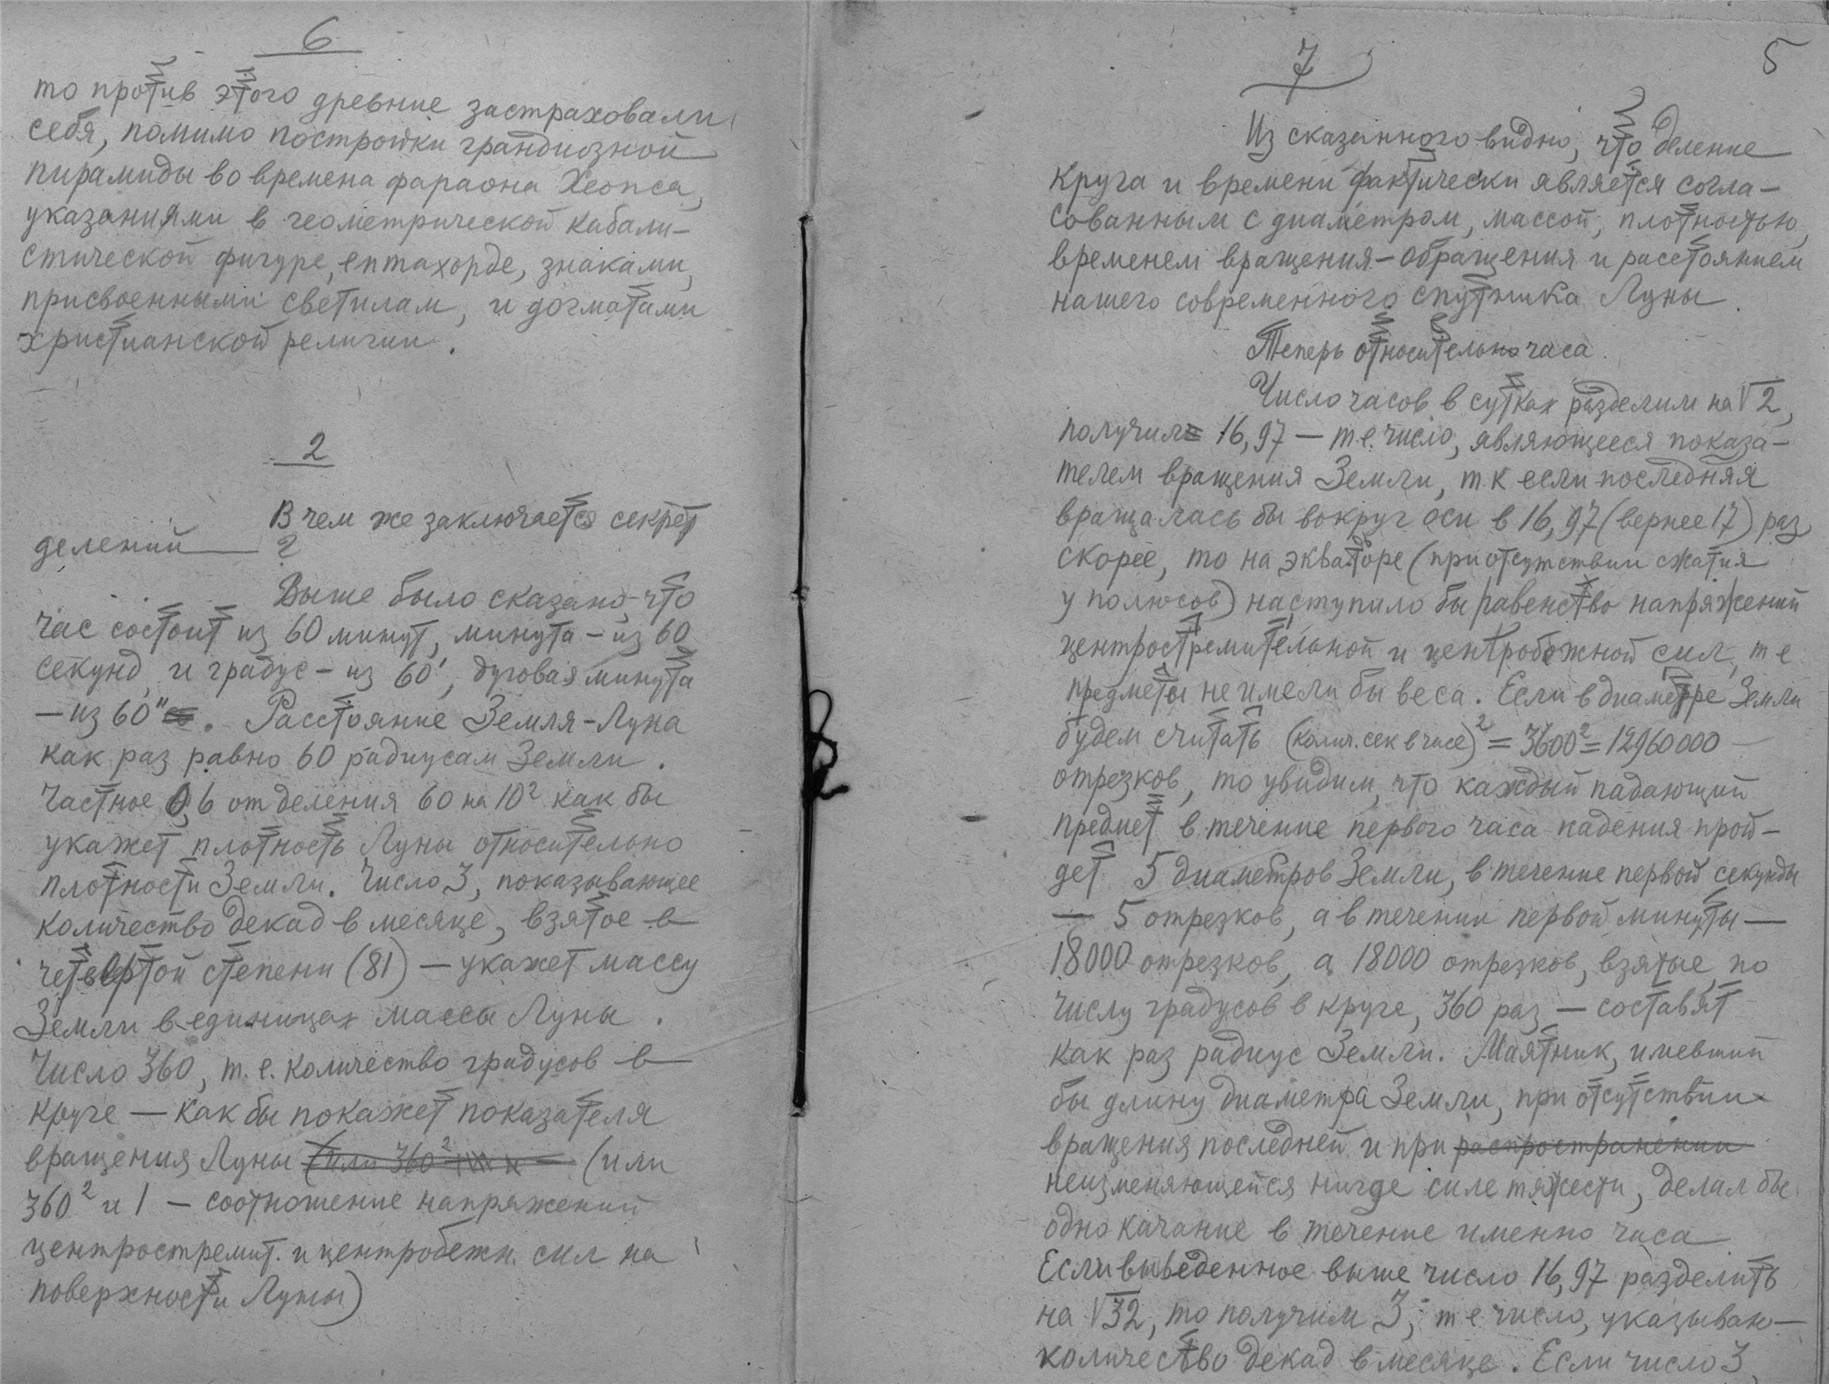 6
то против этого древние застраховали
себя, помимо постройки грандиозной
пирамиды во времена фараона Хеопса,
указаниями в геометрической кабали-
стической фигуре, ептахорде, знаками,
присвоенными светилам, и догматами
христианской религии.
2
В чем же заключается секрет
делений ?
Выше было сказано, что
час состоит из 60 минут, минута – из 60
секунд, и градус – из 60', дуговая минута
– из 60". Расстояние Земля-Луна
как раз равно 60 радиусам Земли.
Частное 0,6 от деления 60 на 10² как бы
укажет плотность Луны относительно
плотности Земли. Число 3, показывающее
количество декад в месяце, взятое в
четвертой степени (81) – укажет массу
Земли в единицах массы Луны.
Число 360, т.е. количество градусов в
круге – как бы покажет показателя
вращения Луны (или 360² (или
360² и 1 – соотношение напряжений
центростремит. и центробежн. сил на
поверхности Луны)
7
5
Из сказанного видно, что деление
круга и времени фактически является согла-
сованным с диаметром, массой, плотностью,
временем вращения – обращения и расстоянием
нашего современного спутника Луны.
Теперь относительно часа.
Число часов в сутках разделим на √2,
получим 16,97 – т.е. число, являющееся показа-
телем вращения Земли, т.к если последняя
вращалась бы вокруг оси в 16,97 (вернее 17) раз
скорее, то на экваторе (при отсутствии сжатия
у полюсов) наступило бы равенство напряжений
центростремительной и центробежной сил, т е
предметы не имели бы веса. Если в диаметре Земли
будем считать (колич. сек в часе)² = 3600² = 12960000 –
отрезков, то увидим, что каждый падающий
предмет в течение первого часа падения прой-
дет 5 диаметров Земли, в течение первой секунды
– 5 отрезков, а в течении первой минуты –
18000 отрезков, а 18000 отрезков, взятые по
числу градусов в круге, 360 раз – составят
как раз радиус Земли. Маятник, имевший
бы длину диаметра Земли, при отсутствии
вращения последней и при распространении
неизменяющейся нигде силе тяжести, делал бы
одно качание в течение именно часа
Если выведенное выше число 16,97 разделить
на √32, то получим 3, т е число, указываю-
количество декад в месяце. Если число 3,